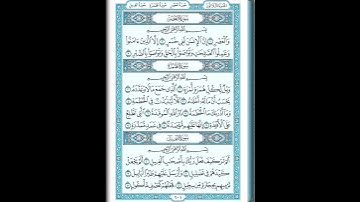 الجزء الثلاثون سورة العصر سورة الهمزة سورة الفيل
سُورَةُ العَصْرِ
بِسْمِ ٱللَّهِ ٱلرَّحْمَٰنِ ٱلرَّحِيمِ
وَٱلْعَصْرِ ١ إِنَّ ٱلْإِنسَٰنَ لَفِى خُسْرٍ ٢ إِلَّا ٱلَّذِينَ ءَامَنُوا۟
وَعَمِلُوا۟ ٱلصَّٰلِحَٰتِ وَتَوَاصَوْا۟ بِٱلْحَقِّ وَتَوَاصَوْا۟ بِٱلصَّبْرِ ٣
سُورَةُ الهُمَزَةِ
بِسْمِ ٱللَّهِ ٱلرَّحْمَٰنِ ٱلرَّحِيمِ
وَيْلٌ لِّكُلِّ هُمَزَةٍ لُّمَزَةٍ ١ ٱلَّذِى جَمَعَ مَالًا وَعَدَّدَهُۥ ٢
يَحْسَبُ أَنَّ مَالَهُۥٓ أَخْلَدَهُۥ ٣ كَلَّا لَيُنۢبَذَنَّ فِى ٱلْحُطَمَةِ ٤
وَمَآ أَدْرَىٰكَ مَا ٱلْحُطَمَةُ ٥ نَارُ ٱللَّهِ ٱلْمُوقَدَةُ ٦ ٱلَّتِى تَطَّلِعُ
عَلَى ٱلْأَفْـِٔدَةِ ٧ إِنَّهَا عَلَيْهِم مُّؤْصَدَةٌ ٨ فِى عَمَدٍ مُّمَدَّدَةٍۭ ٩
سُورَةُ الفِيلِ
بِسْمِ ٱللَّهِ ٱلرَّحْمَٰنِ ٱلرَّحِيمِ
أَلَمْ تَرَ كَيْفَ فَعَلَ رَبُّكَ بِأَصْحَٰبِ ٱلْفِيلِ ١ أَلَمْ يَجْعَلْ
كَيْدَهُمْ فِى تَضْلِيلٍ ٢ وَأَرْسَلَ عَلَيْهِمْ طَيْرًا أَبَابِيلَ ٣
تَرْمِيهِم بِحِجَارَةٍ مِّن سِجِّيلٍ ٤ فَجَعَلَهُمْ كَعَصْفٍ مَّأْكُولٍۭ ٥
٦٠١